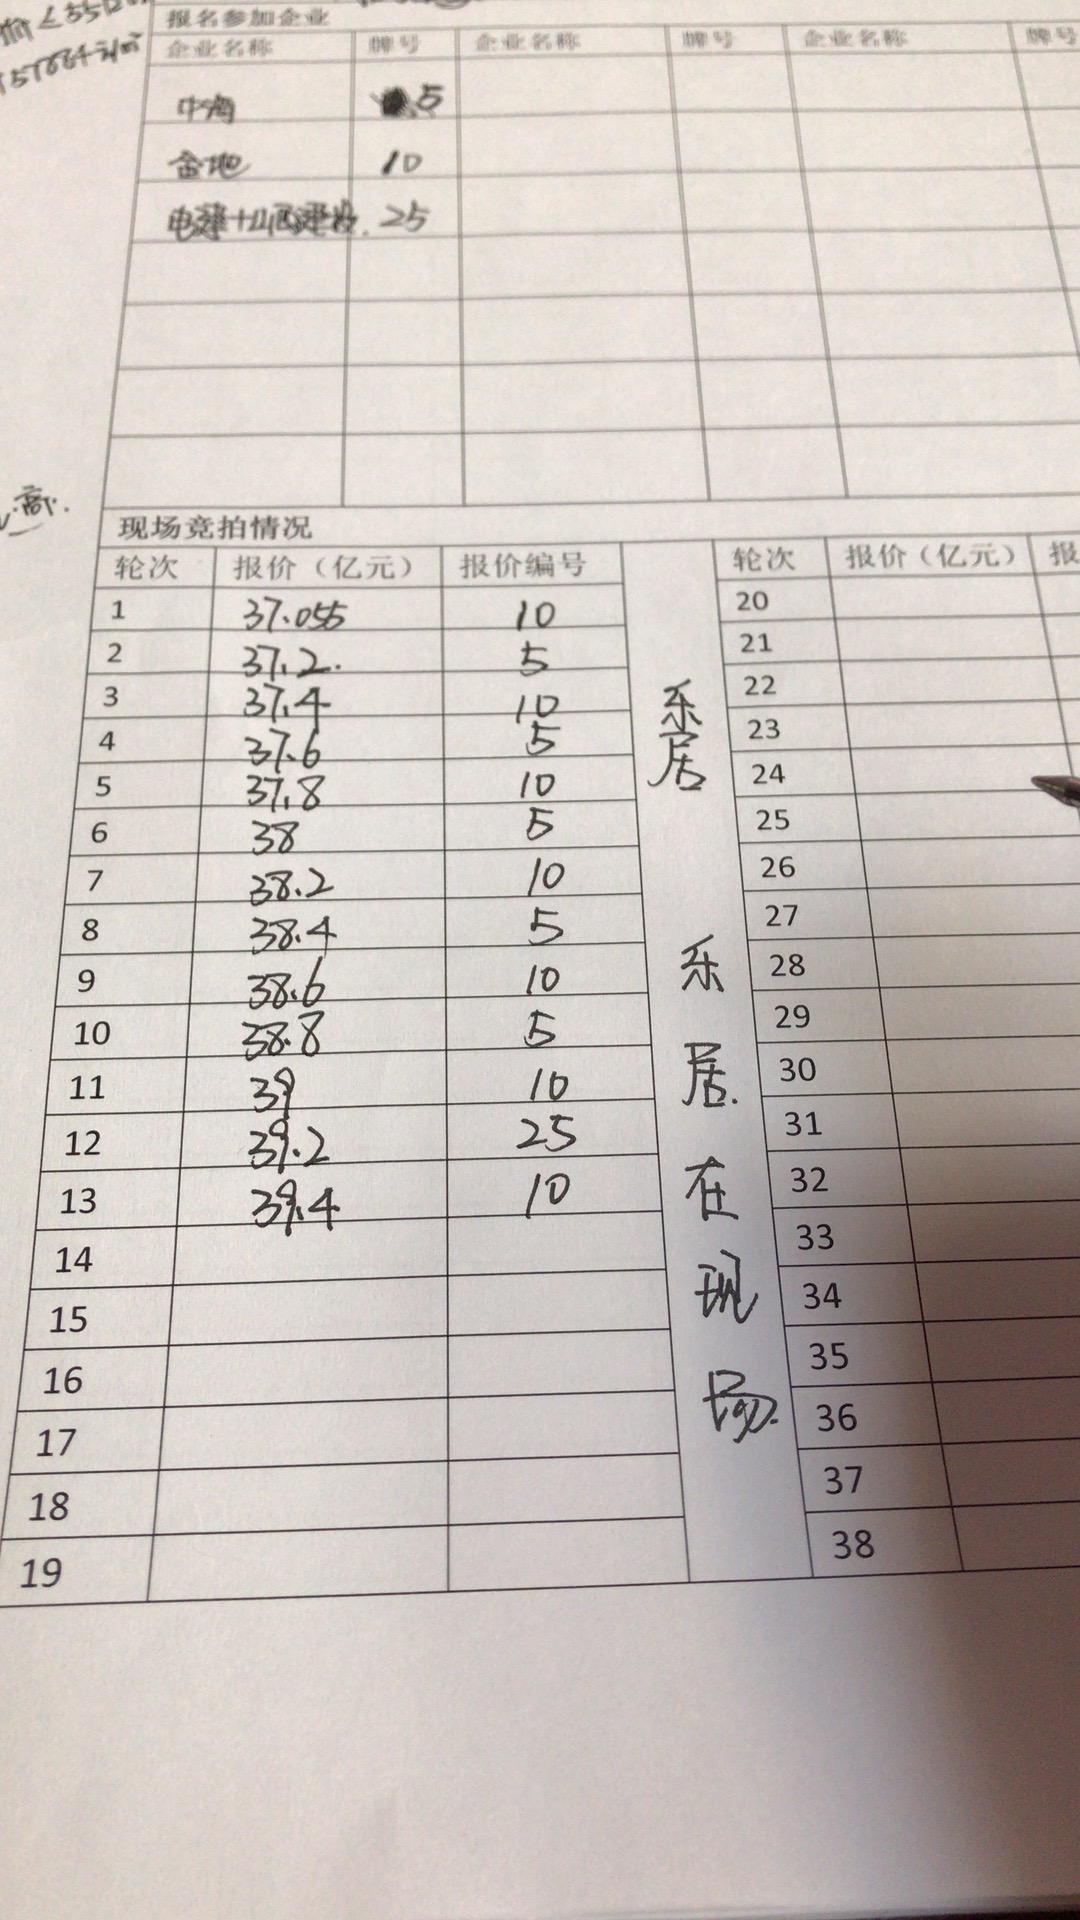 报名参加企业
企业名称 牌号 企业名称 牌号 企业名称 牌号
中海 5
金地 10
电建+山西建投. 25
高.
现场竞拍情况
轮次 报价（亿元） 报价编号 轮次 报价（亿元） 报
1 37.055 10 20
2 37.2. 5 21
3 37.4 10 22
4 37.6 5 23
5 37.8 10 24
6 38 5 25
7 38.2 10 26
8 38.4 5 27
9 38.6 10 28
10 38.8 5 29
11 39 10 30
12 39.2 25 31
13 39.4 10 32
14 33
15 34
16 35
17 36
18 37
19 38
乐居
乐居.在现场.